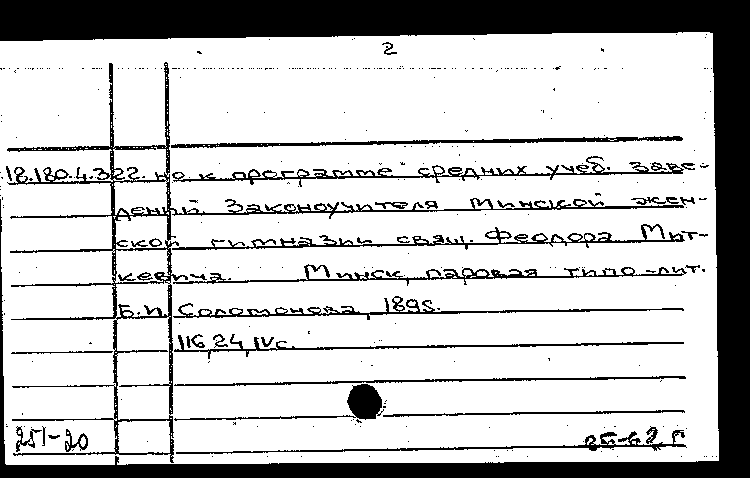 2
18.180.4.322. но к программе средних учеб. заве-
дений. Законоучителя Минской жен-
ской гимназии свящ. Феодора Мит-
кевича. Минск, паровая типо-лит.
Б.И. Соломонова, 1895.
116,24,IVс.
251-20